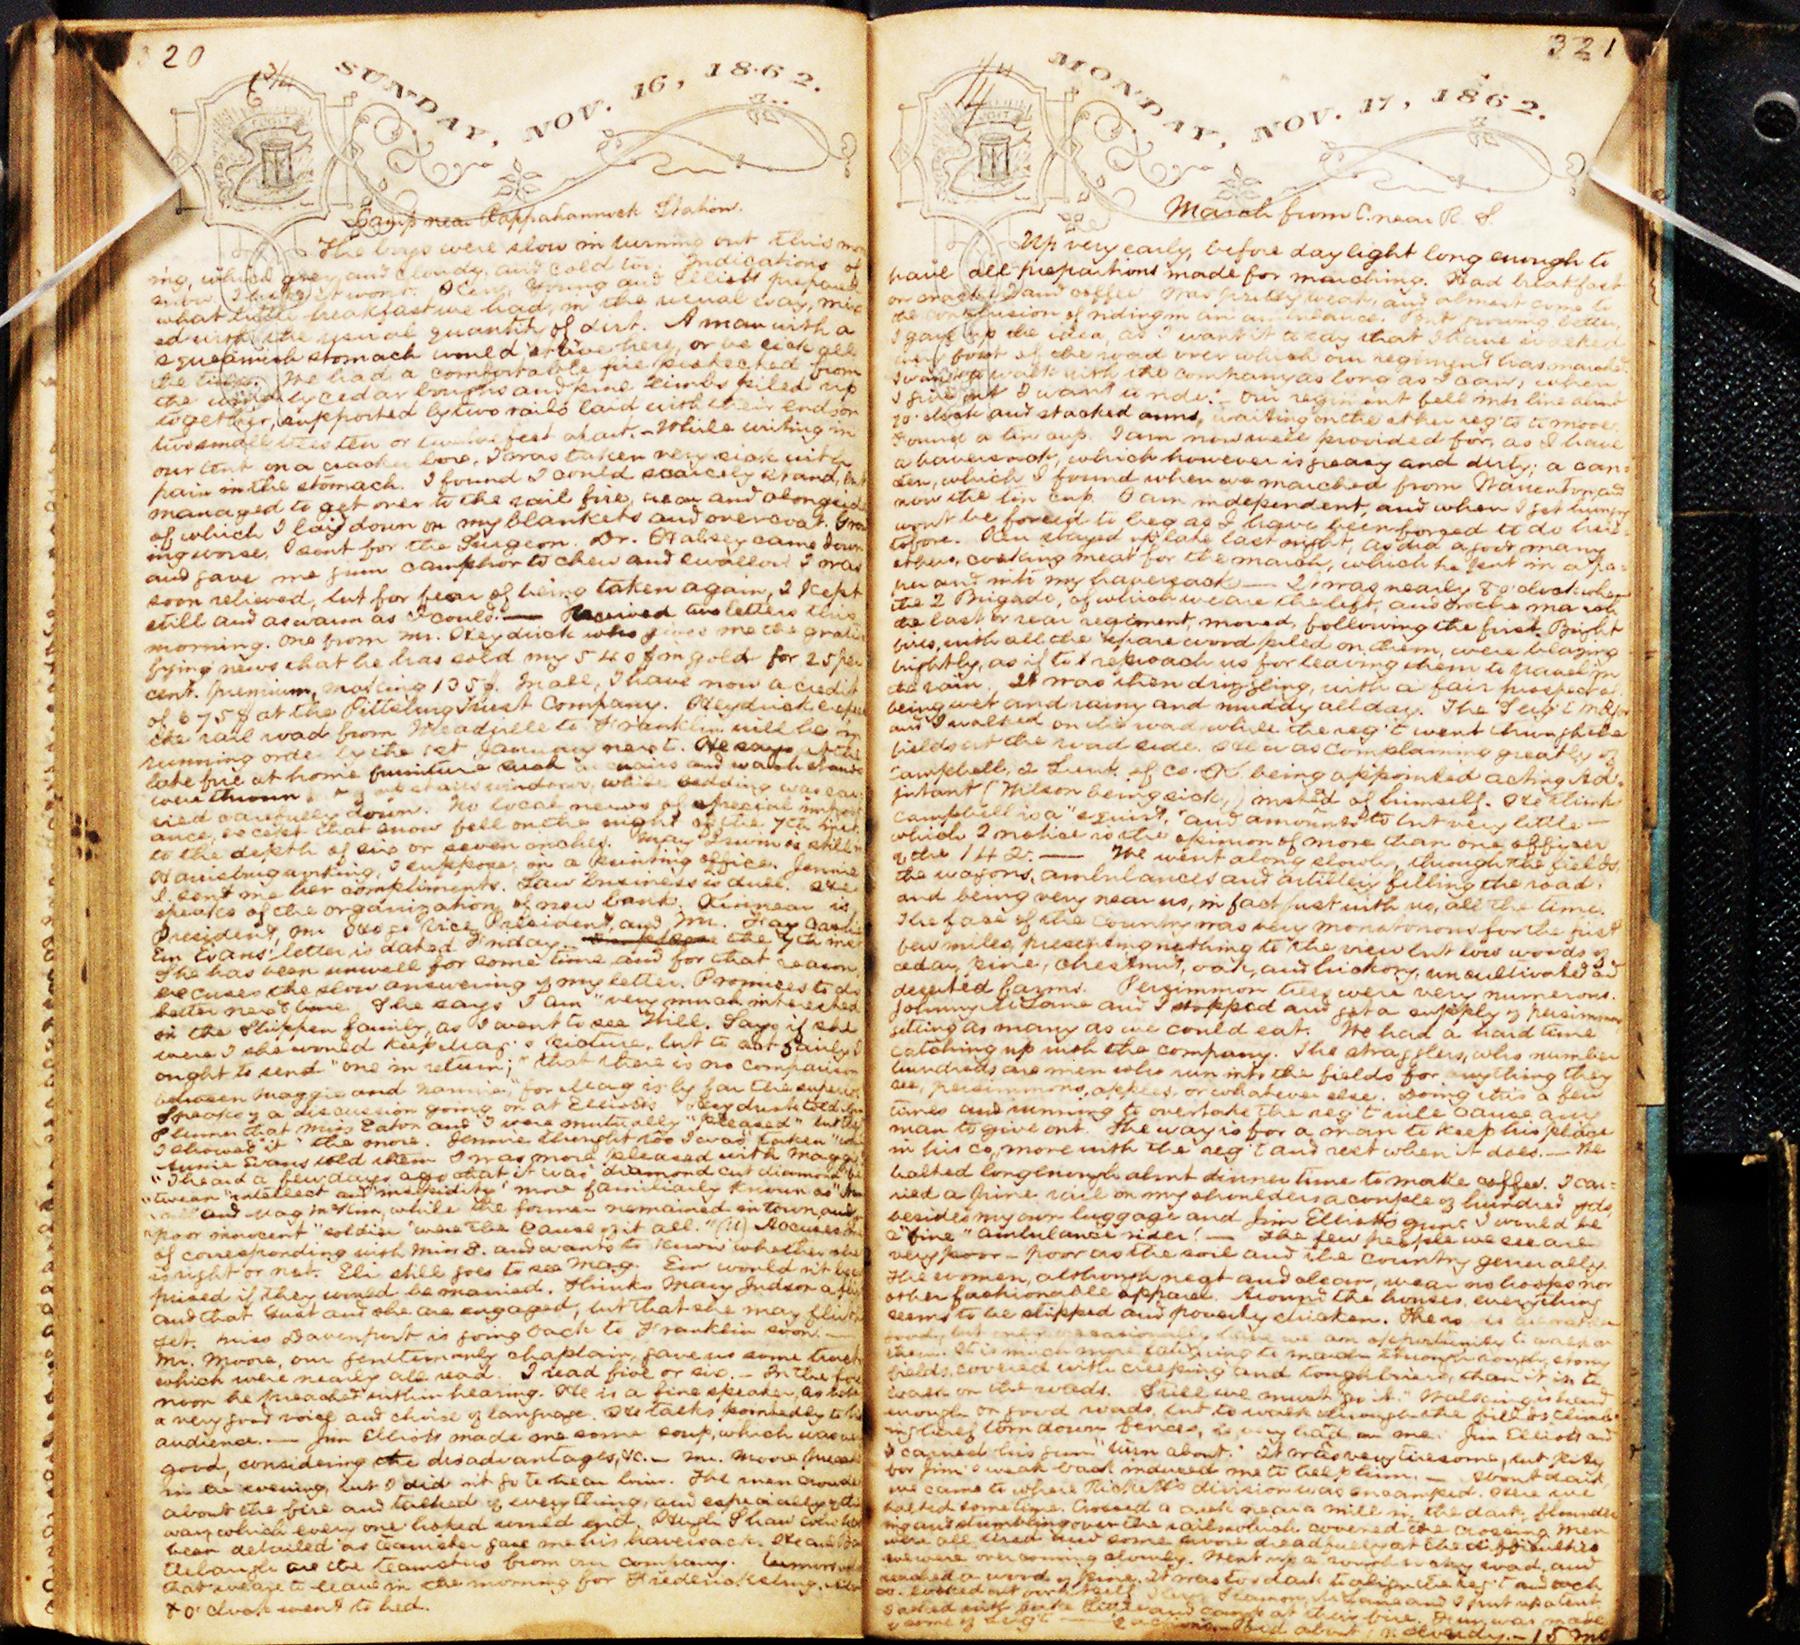 320
SUNDAY, NOV. 16, 1862.
Camp near Rappahannock Station.
The boys were slow in turning out this mor
ning, which grey, and cloudy, and cold too. Indications of
snow. I hope it won't. Young and Elliott prepared
what little breakfast we had, in the usual way, mix
ed with the usual quantity of dirt. A man with a
squeamish stomach would starve here, or be sick all
the time. We had a comfortable fire protected from
the wind by cedar boughs and pine limbs piled up
together, supported by two rails laid with their ends on
two small trees ten or twelve feet apart. - While writing in
our tent on a cracker box, I was taken very sick with
pain in the stomach. I found I could scarcely stand, but
managed to get over to the rail fire, near and alongside
of which I laid down on my blankets and overcoat. Grow
ing worse, I sent for the Surgeon. Dr. Halsey came down
and gave me gum camphor to chew and swallow. I was
soon relieved, but for fear of being taken again, I kept
still and as warm as I could. — Received two letters this
morning. One from Mr. Heydrick who gives me the grati
fying news that he has sold my 540$ in gold for 25 per
cent. premium, making 135$. In all, I have now a credit
of 675$ at the Pittsburg Trust Company. Heydrick expects
the rail road from Meadville to Franklin will be in
running order by the 1st January next. He says at the
late fire at home furniture such as chairs and wash stands
were thrown up stairs windows, while bedding was car
ried carefully down. No local news of special import
ance, except that snow fell on the night of the 7th inst.
to the depth of six or seven inches. Mary Irwin is still at
Harrisburg working, I suppose, in a printing office. Jennie
I. sent me her compliments. Law business is dull. He
speaks of the organization of new bank. Kinnear is
President, Mr. Vice President, and Mr. Cashier
Em Evans' letter is dated Friday the 7th inst
She has been unwell for some time and for that reason
excuses the slow answering of my letter. Promises to do
better next time. She says I am "very much interested
in the Shippen family, as I went to see Will. Says if she
were I she would keep Mag's picture, but to act fairly I
ought to send "one in return;" that there is no comparison
between Maggie and Nannie, "for Mag is by far the superior.
Speaks of a discussion going on at Elliotts Heydrick told
Plumer that Miss Eaton and I were mutually "pleased" but that
I showed it the more. Jennie thought too I was taken"
Annie Evans told them I was more pleased with Maggie
"I heard a few days ago that it was diamond cut diamond" be
"tween "intellect and "insipidity" more familiarly known as
and Mag McKinn, while the former remained in town and
poor innocent" soldier were the cause of it all." (!!) Accuses me
of corresponding with Miss E. and wants to know whether she
is right or not. Eli still goes to see Mag. Em would n't be sur
prised if they would be married. Thinks Mary Judson a flirt
and that Gust and she are engaged, but that she may flirt
yet. Miss Davenport is going back to Franklin soon. —
Mr. Moore, our gentlemanly chaplain, gave us some tracts
which were nearly all read. I read five or six. - In the fore
noon he preached within hearing. He is a fine speaker, as
a very good voice and choice of language. He talks pointedly to his
audience. — Jim Elliott made me some soup, which was very
good, considering the disadvantages, &c. - Mr. Moore preached
in the evening, but I did n't go to hear him. The men crowded
about the fire and talked of everything, and especially of the
war, which every one hoped would end. Hugh Shaw who has
been detailed as teamster gave me his haversack. He and
Titus are the teamsters from our company. Rumors
that we are to leave in the morning for Fredericksburg.
8 o'clock went to bed.
321
MONDAY, NOV. 17, 1862.
March from C. near R. S.
Up very early, before daylight long enough to
have all preparations made for marching. Had breakfast
on crackers and coffee. Was pretty weak, and almost came to
the conclusion of riding in an ambulance. But growing better,
I gave up the idea, as I want it to say that I have walked
every foot of the road over which our regiment has marched.
I want to walk with the company as long as I can; when
I give out I want to ride. - Our regiment fell into line about
7 o'clock and stacked arms, waiting on the other reg'ts to move.
Found a tin cup. I am now well provided for, as I have
a haversack, which however is greasy and dirty; a can-
teen, which I found when we marched from Warrenton, and
now the tin cup. I am independent, and when I get hungry
won't be forced to beg as I have been forced to do here-
tofore. Ken stayed up late last night, as did a good many
others, cooking meat for the march, which he put in a pa-
per and into my haversack — It was nearly 8 o'clock when
the 2 Brigade, of which we are the left, and on the march
the last or rear regiment, moved, following the first. Bright
fires, with all the spare wood piled on them, were blazing
brightly, as if to reproach us for leaving them to travel in
the rain. It was then drizzling, with a fair prospect of
being wet and rainy and muddy all day. The Serg't Major
and I walked on the road while the reg't went through the
fields at the road side. He was complaining greatly of
Campbell, 2 Lieut. of Co. K being appointed acting Ad-
jutant (Wilson being sick,) instead of himself. He thinks
Campbell is a "squirt," and amounts to but very little -
which I notice is the opinion of more than one officer
of the 142. — We went along slowly, through the fields,
the wagons, ambulances and artillery filling the road,
and being very near us, in fact just with us, all the time.
The face of the country was very monotonous for the first
few miles, presenting nothing to the view but low woods of
cedar, pine, chestnut, oak, and hickory, uncultivated and
deserted farms. Persimmon trees were very numerous.
Johnny McLane and I stopped and got a supply of persimmons
eating as many as we could eat. We had a hard time
catching up with the company. The stragglers, who number
hundreds are men who run into the fields for anything they
see, persimmons, apples, or whatever else. Doing this a few
times and running to overtake the reg't will cause any
man to give out. The way is for a man to keep his place
in his co, move with the reg't and rest when it does. — We
halted long enough about dinner time to make coffee. I car-
ried a pine rail on my shoulders a couple of hundred yds,
besides my own luggage and Jim Elliott's gun. I would be
a "fine" ambulance rider! — The few people we see are
very poor - poor as the soil and the country generally.
The women, although neat and clean, wear no hoops nor
other fashionable apparel. Around the houses, everything
seems to be stripped and poverty stricken. There is
road, but only occasionally have we an opportunity to walk on
them. It is much more fatiguing to march through rough, stony
fields, covered with creeping and tough briers, than it is to
walk on the roads. Still we must "go it." Walking is hard
enough on good roads, but to walk through the fields climb-
ing torn down fences, is very hard on me. Jim Elliott and
I carried his gun "turn about." It was very tiresome, but pity
for Jim's weak back induced me to help him. — About dark
we came to where Ricketts' division was encamped. Here we
halted sometime. Crossed a creek near a mill in the dark, flounder
ing and stumbling over the rails which covered the crossing. Men
were all tired and some swore dreadfully at the difficulties
we were overcoming slowly. Went up a rough rocky road, and
reached a wood of pine. It was too dark to align the reg't and each
co. looked out for itself. McLane and I put up a tent.
15 m